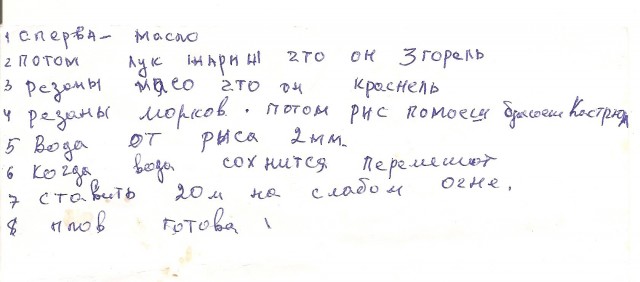 1 сперва - масло
2 потом лук шариш что он згорель
3 резаны мясо что он краснель
4 резаны морков. потом рис помоеш бросаеш кастрюл
5 вода от рыса 2 мм.
6 когда вода сохнится перемешат
7 ставить 20 м на слабом огне.
8 плов готова